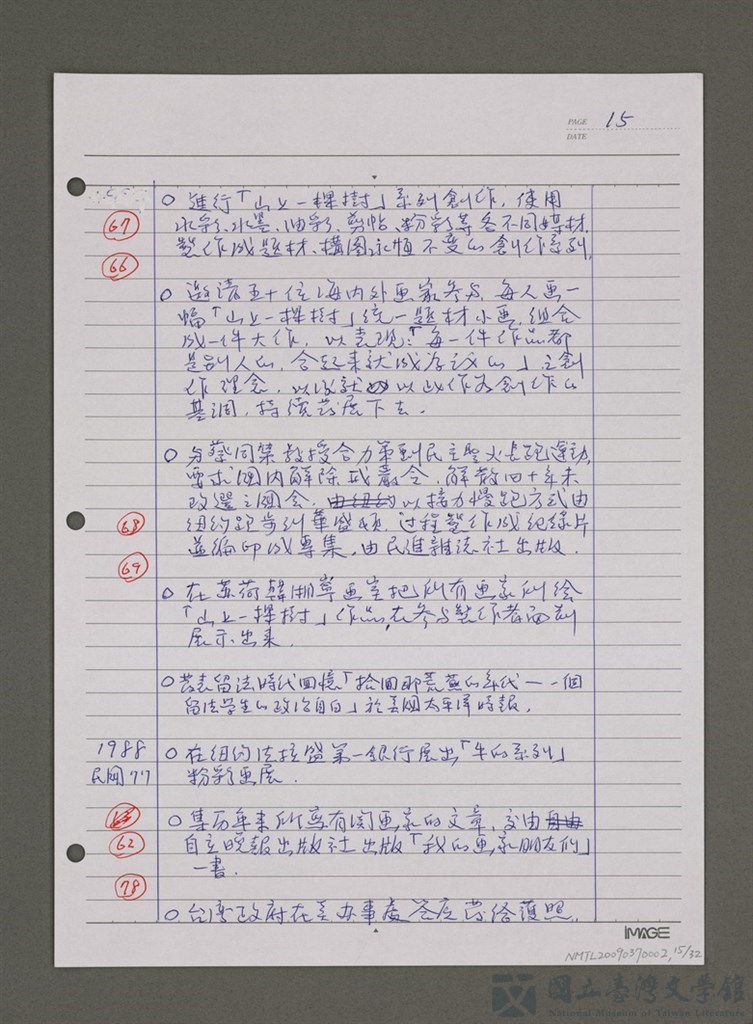 PAGE 15
DATE
○ 進行「山上一棵樹」系列創作，使用
67
水彩、水墨、油彩、剪帖、粉彩等各不同媒材，
製作成題材、構圖永恒不變的創作系列，
66
○ 邀請五十位海內外画家參与，每人画一
幅「山上一棵樹」統一題材小画，組合
成一件大作，以表現：「每一件作品都
是別人的，合起来就成為我的」之創
作理念，以後就以此作為創作的
基調，持續發展下去．
○ 与蔡同榮教授合力策劃民主聖火長跑運動，
要求國內解除戒嚴令，解散四十年未
改選之國會，由紐約以接力慢跑方式由
68
紐約跑步到華盛頓，过程製作成紀錄片
並編印成專集，由民進雜誌社出版．
69
○ 在蘇荷韓湘寧画室把所有画家所繪
「山上一棵樹」作品，在參与製作者面前
展示出来．
○ 發表留法時代回憶「拾回那荒蕪的年代──一個
留法学生的政治自白」於美國太平洋時報．
1988
○ 在紐約法拉盛第一銀行展出「牛的系列」
民國77
粉彩画展．
○ 集历年来所寫有関画家的文章，交由
62
自立晚報出版社出版「我的画家朋友們」
一書．
78
○ 台灣政府在美办事處答应發給護照．
IMAGE
NMTL20090370002，15/32
國立臺灣文學館
National Museum of Taiwan Literature